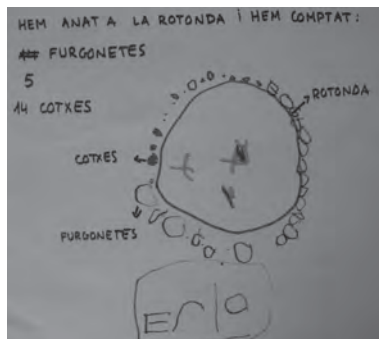 HEM ANAT A LA ROTONDA i HEM COMPTAT:
FURGONETES
5
14 COTXES
ROTONDA
COTXES
FURGONETES